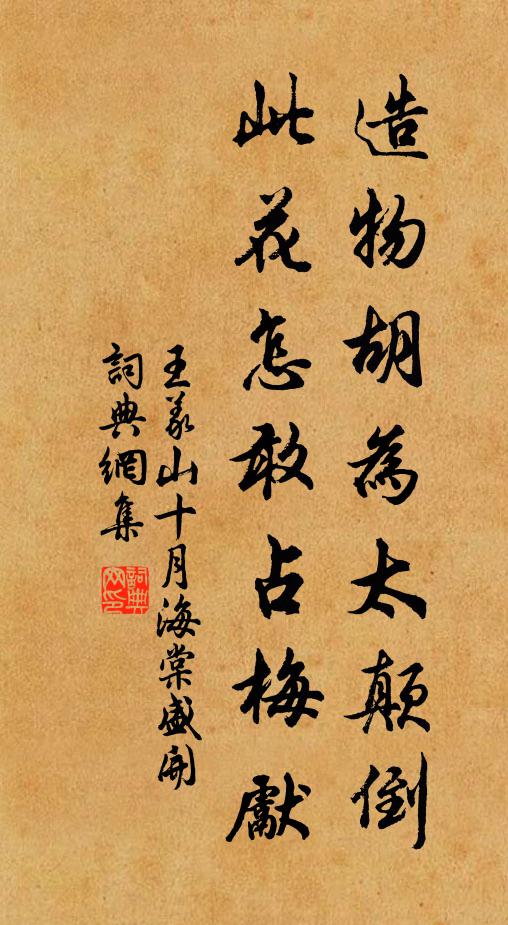 造物胡為太顛倒
此花怎敢占梅獻
王義山十月海棠盛開
詞典網集
詞典網印